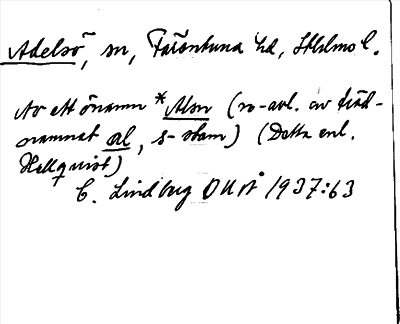 Adelsö, sn, Färentuna hd, Sthlms l.
Av ett önamn *Alsn (n-avl. av träd-
namnet al, s-stam) (Detta enl.
Hellquist)
C. Lindberg OUÅ 1937:63